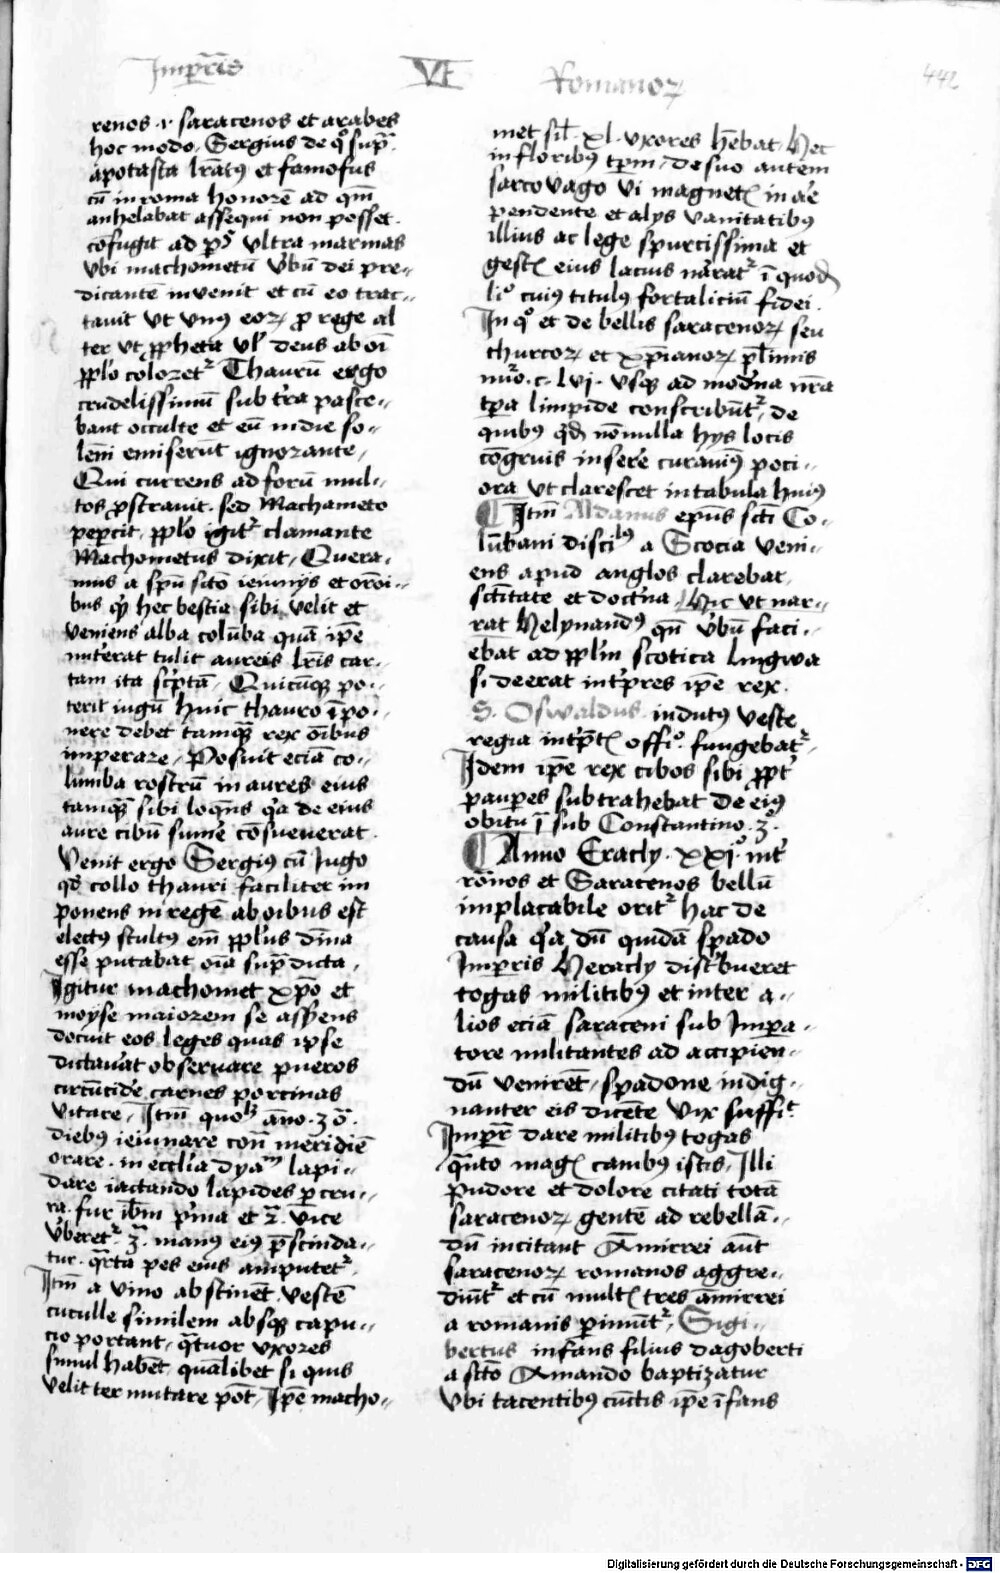 Imp̄ris VI Romanoꝝ 442
renos · ⁊ saracenos et arabes
hoc modo. Sergius de qͦ sup̄ͣ.
apostasta lr̄atꝰ et famosus
cū in roma honorē ad qm̄
anhelabat assequi non posset.
cōfugit ad p̄tes ultra marinas
vbi machometū v̓bū dei pre⸗
dicantē invenit et cū eo trac⸗
tavit ut vnus eoꝝ ꝓ rege al
ter ut ꝓpheta vl̓ deus ab oī
pp̄lo coloretᷣ Thaurū ergo
crudelissimū sub tr̄a pasce⸗
bant occulte et eū in die so⸗
lēni emiserūt ignorante,
Qui currens ad forū mul⸗
tos ꝓstravit. sed Machameto
peꝑcit. pp̄lo igitᷣ clamante
Machometus dixit, Quera⸗
mus a spū sc̄to ieiunijs et orōi⸗
bus qͥd hec bestia sibi velit et
veniens alba colūba quā ip̄e
nut̓erat tulit aureis lr̄is car⸗
tam ita sc̓ptā. Quicūqꝫ po⸗
terit iugū huic thauro īpo⸗
nere debet tamqꝫ rex oībus
imperare. Posuit eciā co⸗
lumba rostrū in aures eius
tamqꝫ sibi loqn̄s qͥa de eius
aure cibū sum̓e cōsueverat.
Venit ergo Sergiꝰ cū Jugo
qd̓ collo thauri faciliter im
ponens in regē ab oībus est
electꝰ stultꝰ em̄ pp̄lus dīna
esse putabat oīa sup̄dicta.
Igitur machomet xp̄o et
moyse maiorem se asserens
docuit eos leges quas ipse
dictav̓at observare pueros
circūcid̓e, carnes porcinas
vitare, Itm̄ quolꝫ āno · 30 ·
diebꝰ ieiunare cont̄ meridiē
orare. in eccl̓ia dyaᵐ lapi⸗
dare iactando lapides ꝑ cru⸗
ra. fur ibm̄ pͥma et 2ͣ. vice
v̓beretᷣ. 3ͣ. manꝰ eiꝰ p̄scinda⸗
tur. qͣrta pes eius amputetᷣ.
Itm̄ a vino abstinēt. vestē
cuculle similem absqꝫ capu⸗
cio portant. qͣtuor vxores
simul habēt. quālibet si quis
velit ter mutare pōt, Ip̄e macho⸗
met sil̓. xl. vxores h̄ebat. Hec
in floribꝰ tp̄m. de suo autem
sarcovago vi magnetꝭ in ae̓
pendente et alijs vanitatibꝰ
illius ac lege spurcissima et
gestꝭ eius lacius n̓aratᷣ ī quod̓
liͦ cuiꝰ titulꝰ fortaliciū fidei.
In qͦ et de bellis saracenoꝝ seu
thurcoꝝ et xp̄ianoꝝ pl̓imis
nūo. c. lvi. vsqꝫ ad mod̓na nr̄a
tp̄a limpide conscribūtᷣ. de
quibꝰ qd̓ nōnulla hijs locis
cōgruis inser̓e curavimꝰ poci⸗
ora ut clarescet in tabula huiꝰ
Itm̄ Aldanus ep̄us sc̄ti Co⸗
lūbani discilꝰ a Scocia veni⸗
ens apud anglos clarebat.
sc̄titate et doct̓na. Hic ut nar⸗
rat Helynandꝰ qn̄ v̓bū faci⸗
ebat ad pp̄lm scotica lingwa
si deerat int̓pres ip̄e rex.
S. Oswaldus indutꝰ veste
regia int̓p̄tꝭ offiͦ. fungebatᷣ.
Idem ip̄e rex cibos sibi ꝓpt̓
pauꝑes subtrahebat de eiꝰ
obitu ī sub Constantino. 3ͦ.
Anno Eracly. xxiͦ. int̓
rōnos et Saracenos bellū
implacabile oritᷣ hac de
causa qͥa dū quidā spado
Imperis Heracly dist̓bueret
togas militibꝰ et inter a⸗
lios eciā saraceni sub Impa⸗
tore militantes ad accipien⸗
dū venirēt. spadone indig⸗
nanter eis dicēte vix suffiᵗ
Imp̄r̄ dare militibꝰ togas
qͣnto magꝭ canibꝰ istis, Illi
pudore et dolore citati totā
saracenoꝝ gentē ad rebellā⸗
dū incitant Amirrei aūt
saracenoꝝ romanos aggre⸗
diūtᷣ et cū multꝭ tres āmirrei
a romanis ꝑimūtᷣ. Sigi⸗
bertus infans filius dagoberti
a sc̄to Amando baptizatur
vbi tacentibꝰ cūctis ip̄e īfans
Digitalisierung gefördert durch die Deutsche Forschungsgemeinschaft - DFG